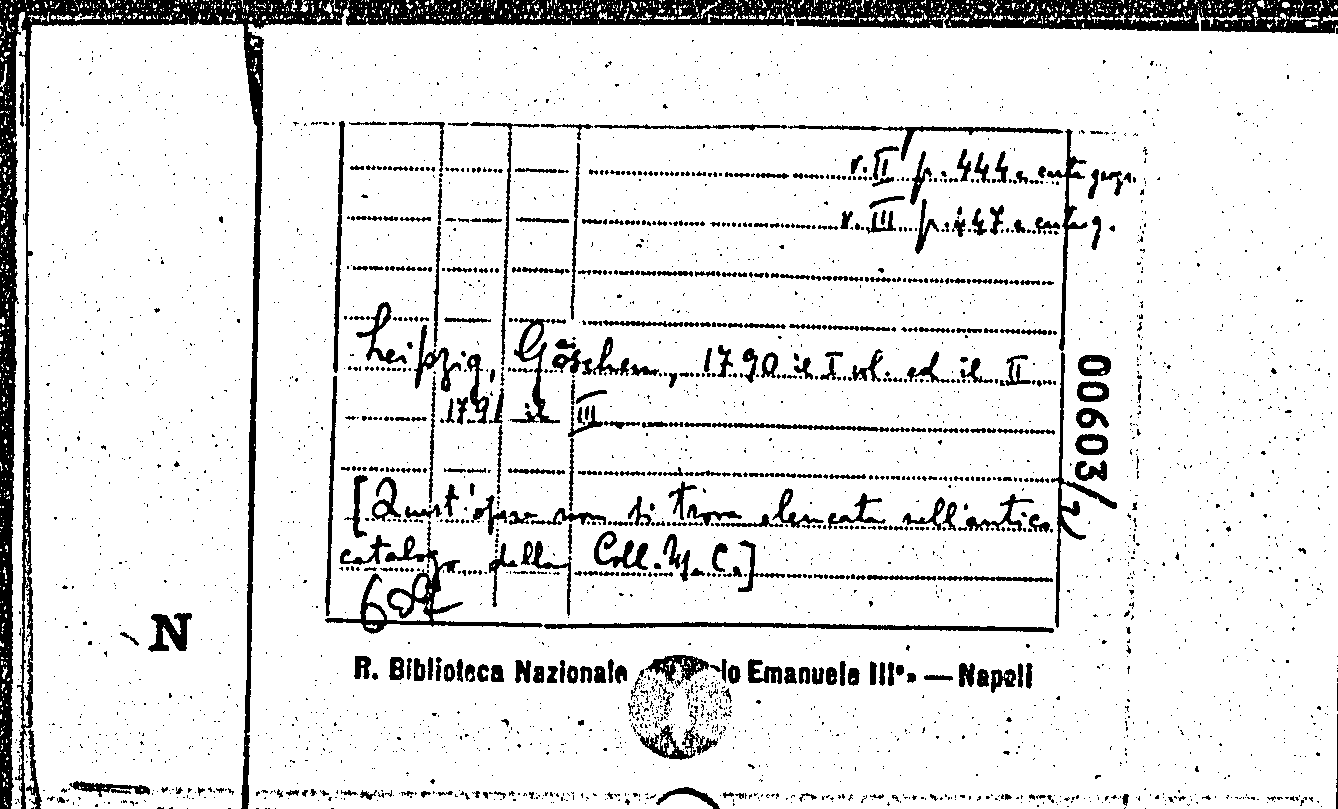 v. II p. 444 e
v. III p. 447 e
Leipzig, Göschen, 1790 il I vol. ed il II
1791 il III
[Quest'opera non si trova elencata nell'antico
catalogo della Coll. M. C.]
00603/2
N
R. Biblioteca Nazionale Emanuele III° » — Napoli